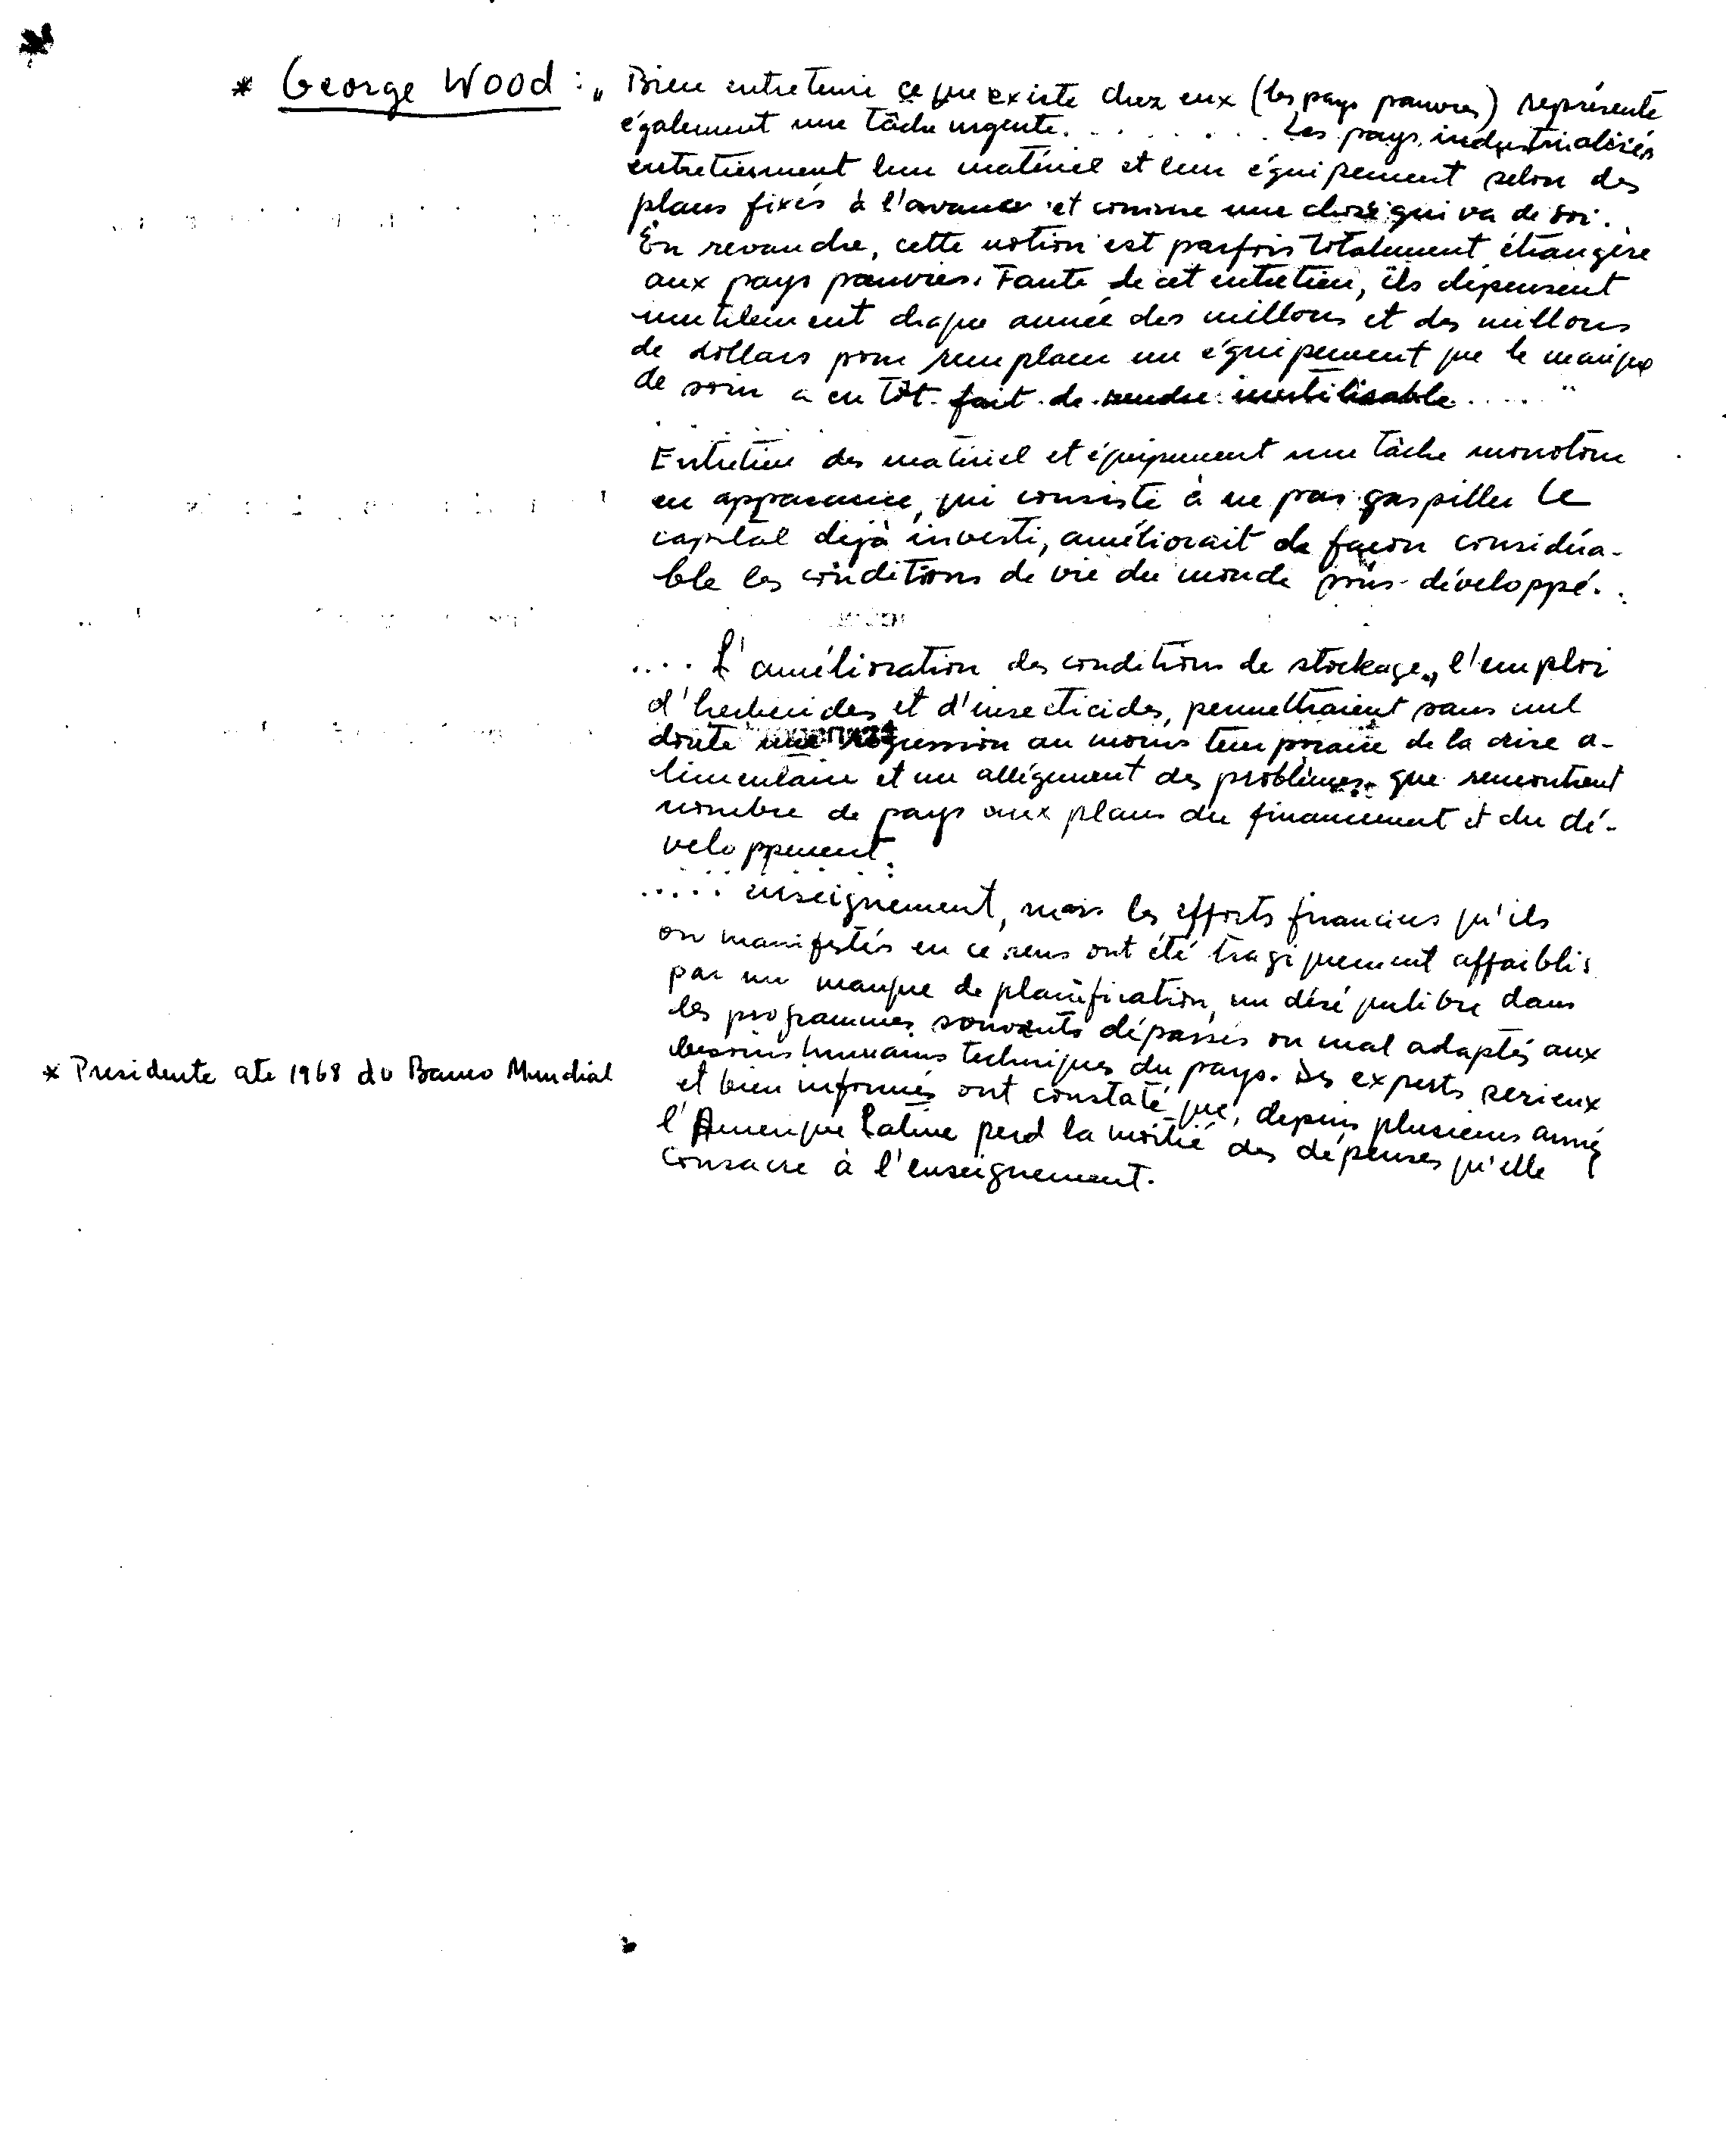 * George Wood : „ Bien entretenir ce que existe chez eux (les pays pauvres) représente
également une tâche urgente. . . . . . . . Les pays industrialisés
entretiennent leur matériel et leur équipement selon des
plans fixés à l'avance et comme une chose qui va de soi.
En revanche, cette notion est parfois totalement étrangère
aux pays pauvres. Faute de cet entretien, ils dépensent
inutilement chaque année des millons et des millons
de dollars pour remplacer un équipement que le manque
de soin a en tôt fait de rendre inutilisable ..... "
Entretien des matériel et équipement une tâche monotone
en apparance, qui consiste à ne pas gaspiller le
capital dejà investi, améliorait de façon considéra-
ble les conditions de vie du monde sous-développé.
.... L'amélioration des conditions de stockage, l'emploi
d'herbicides et d'insecticides, permettraient sans nul
doute une régression au moins temporaire de la crise a-
limentaire et un allégement des problèmes que rencontrent
nombre de pays aux plans du financement et du dé-
veloppement.
..... enseignement, mais les efforts financiers qu'ils
on manifestés en ce sens ont été tragiquement affaiblis
par un manque de planification, un déséquilibre dans
les programmes souvents dépassés ou mal adaptés aux
besoins humains techniques du pays. Des experts serieux
et bien informés ont constaté que, depuis plusieurs années
l'Amerique Latine perd la moitié des dépenses qu'elle
consacre à l'enseignement.
* Presidente ate 1968 do Banco Mundial